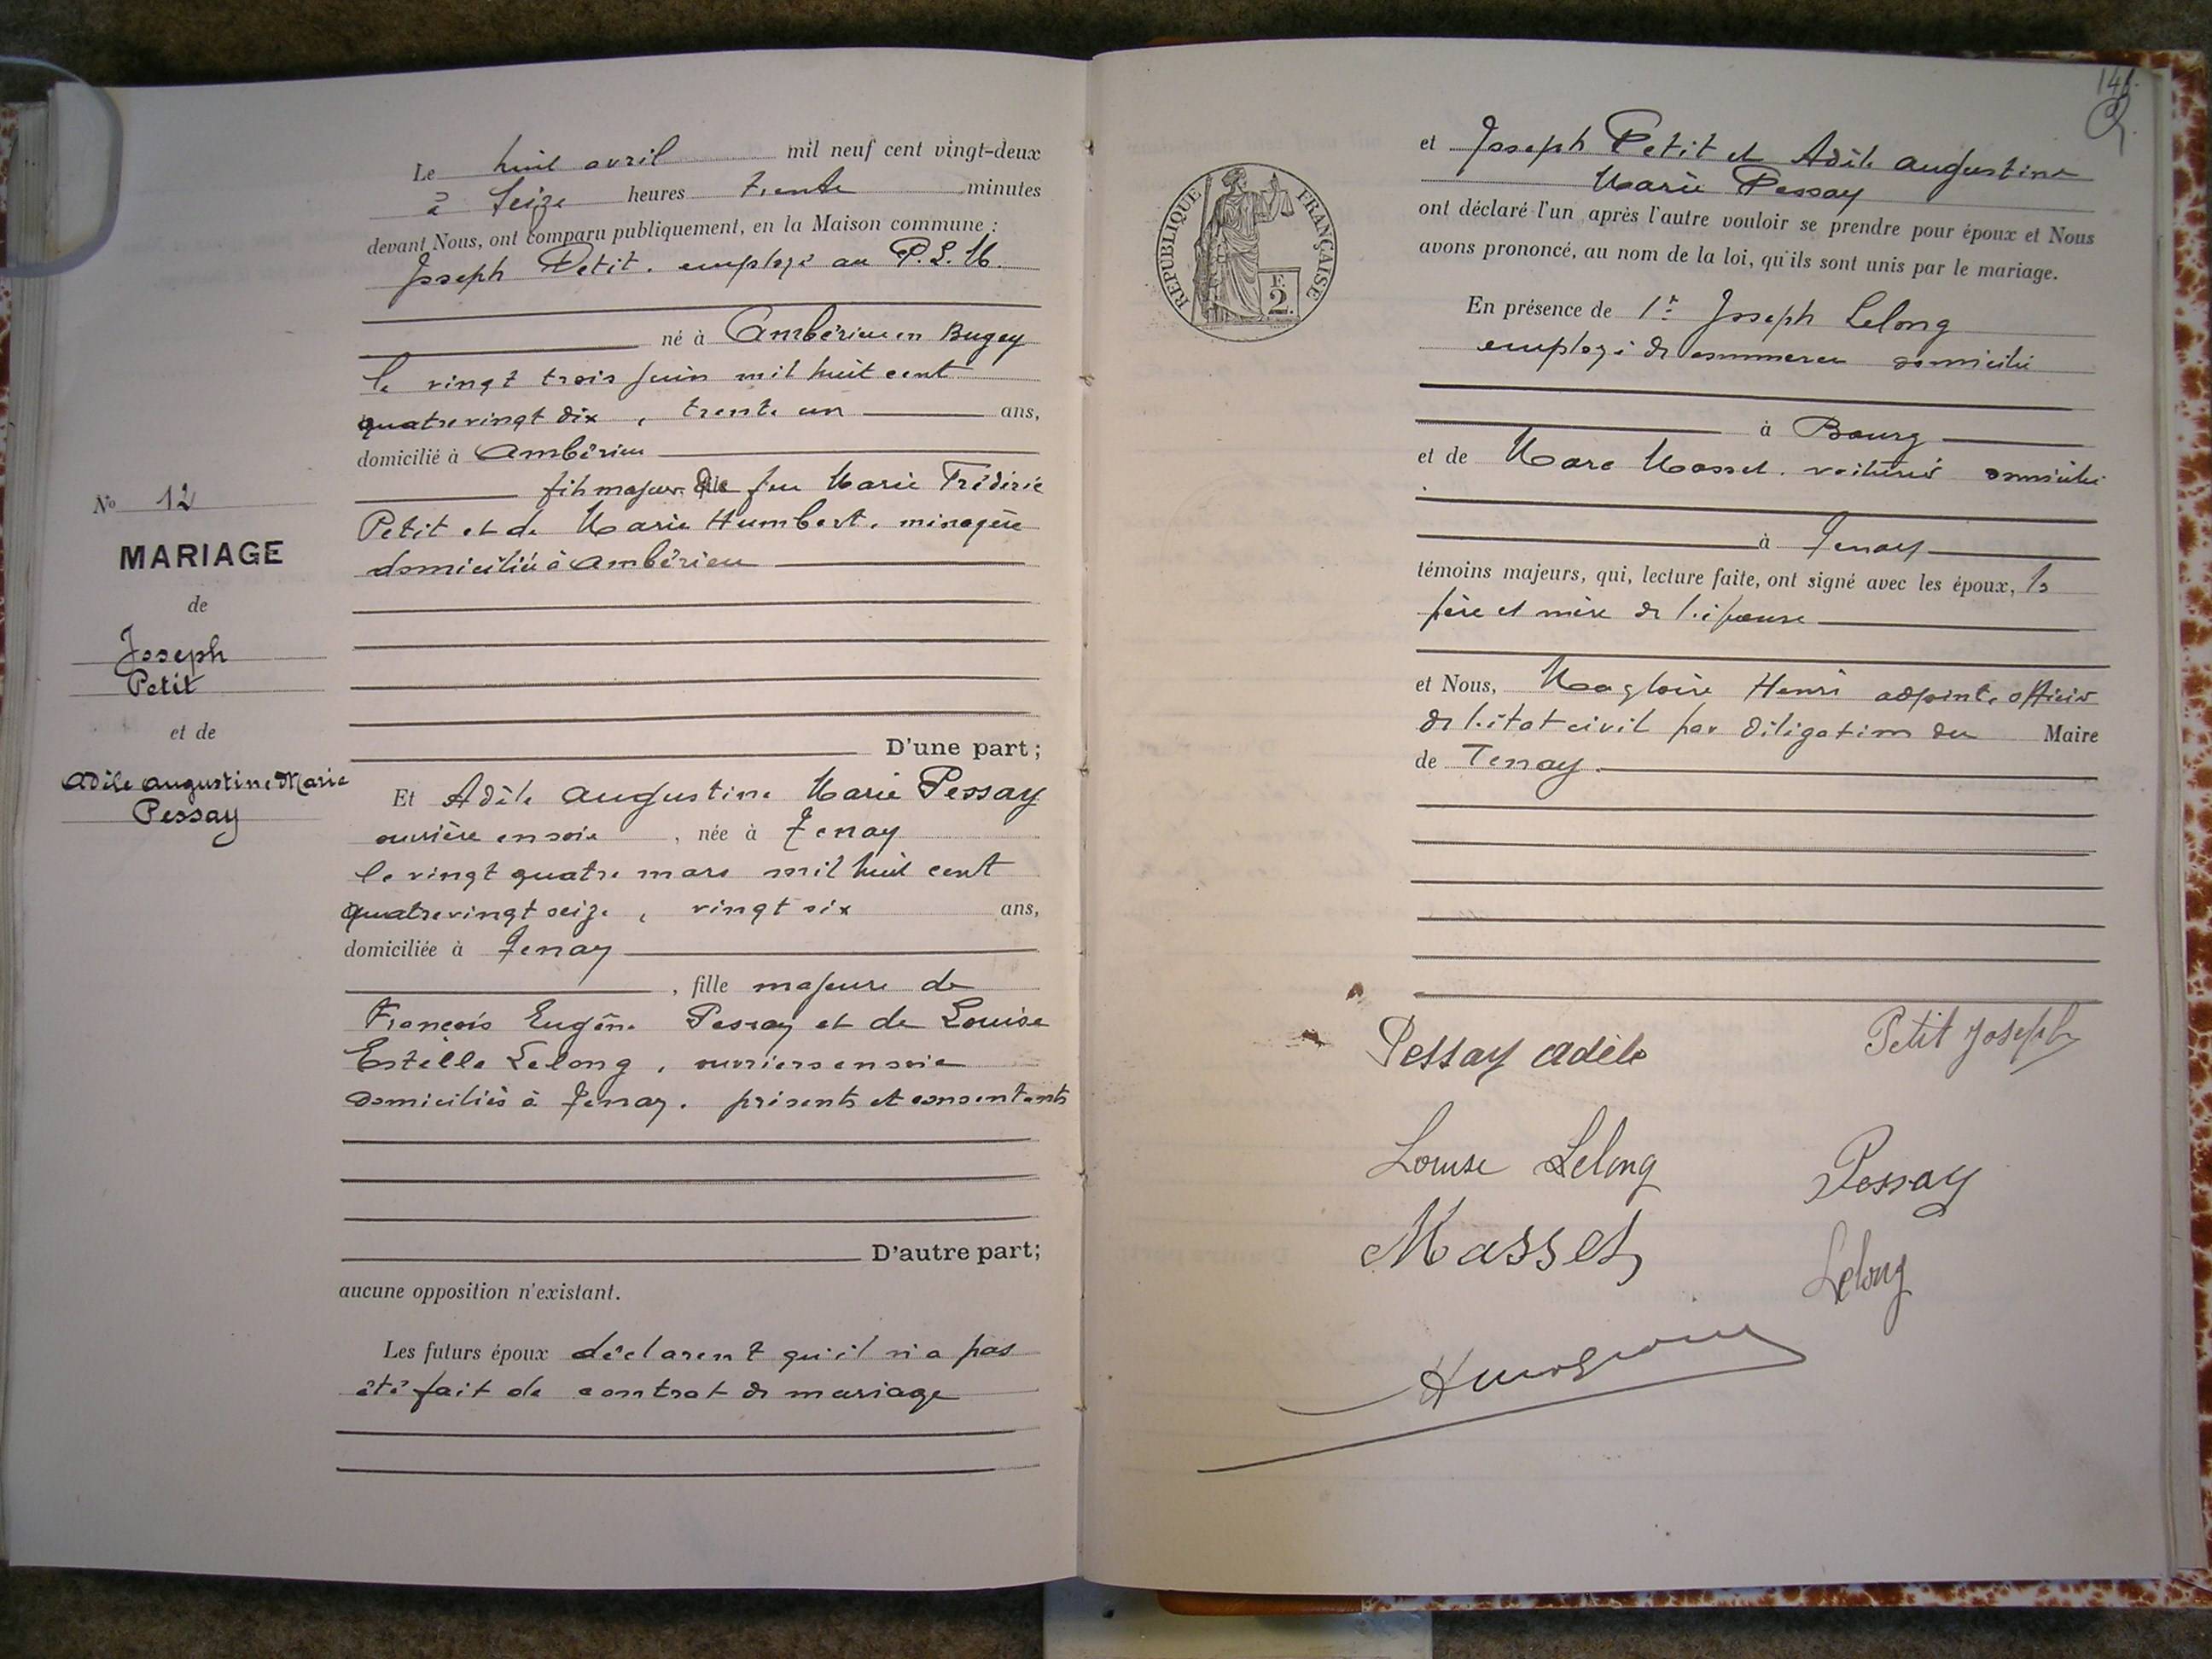 Le huit avril mil neuf cent vingt-deux
à seize heures trente minutes
devant Nous, ont comparu publiquement, en la Maison commune :
Joseph Petit. employé au P.L.M.
né à Ambérieu en Bugey
le vingt trois juin mil huit cent
quatrevingt dix, trente un ans,
domicilié à Ambérieu
fils majeur de feu Marie Frédéric
Petit et de Marie Humbert. ménagère
domiciliée à Ambérieu
D'une part ;
No 12
MARIAGE
de
Joseph
Petit
et de
Adèle Augustine Marie
Pessay
Et Adèle Augustine Marie Pessay
ouvrière en soie, née à Tenay
le vingt quatre mars mil huit cent
quatrevingt seize, vingt six ans,
domiciliée à Tenay
, fille majeure de
François Eugène Pessay et de Louise
Estelle Lelong, ouvriers en soie
domiciliés à Tenay. présents et consentants
D'autre part;
aucune opposition n'existant.
Les futurs époux déclarent qu'il n'a pas
été fait de contrat de mariage
146.
RÉPUBLIQUE FRANÇAISE
F.
2.
et Joseph Petit et Adèle Augustine
Marie Pessay
ont déclaré l'un après l'autre vouloir se prendre pour époux et Nous
avons prononcé, au nom de la loi, qu'ils sont unis par le mariage.
En présence de 1° Joseph Lelong
employé de commerce domicilié
à Bourg
et de Marc Masset. voiturier domicilié
à Tenay
témoins majeurs, qui, lecture faite, ont signé avec les époux, les
père et mère de l'épouse
et Nous, Magloire Henri adjoint, officier
de l'état civil par délégation du Maire
de Tenay.
Pessay Adèle
Petit Joseph
Louise Lelong
Pessay
Masset
Lelong